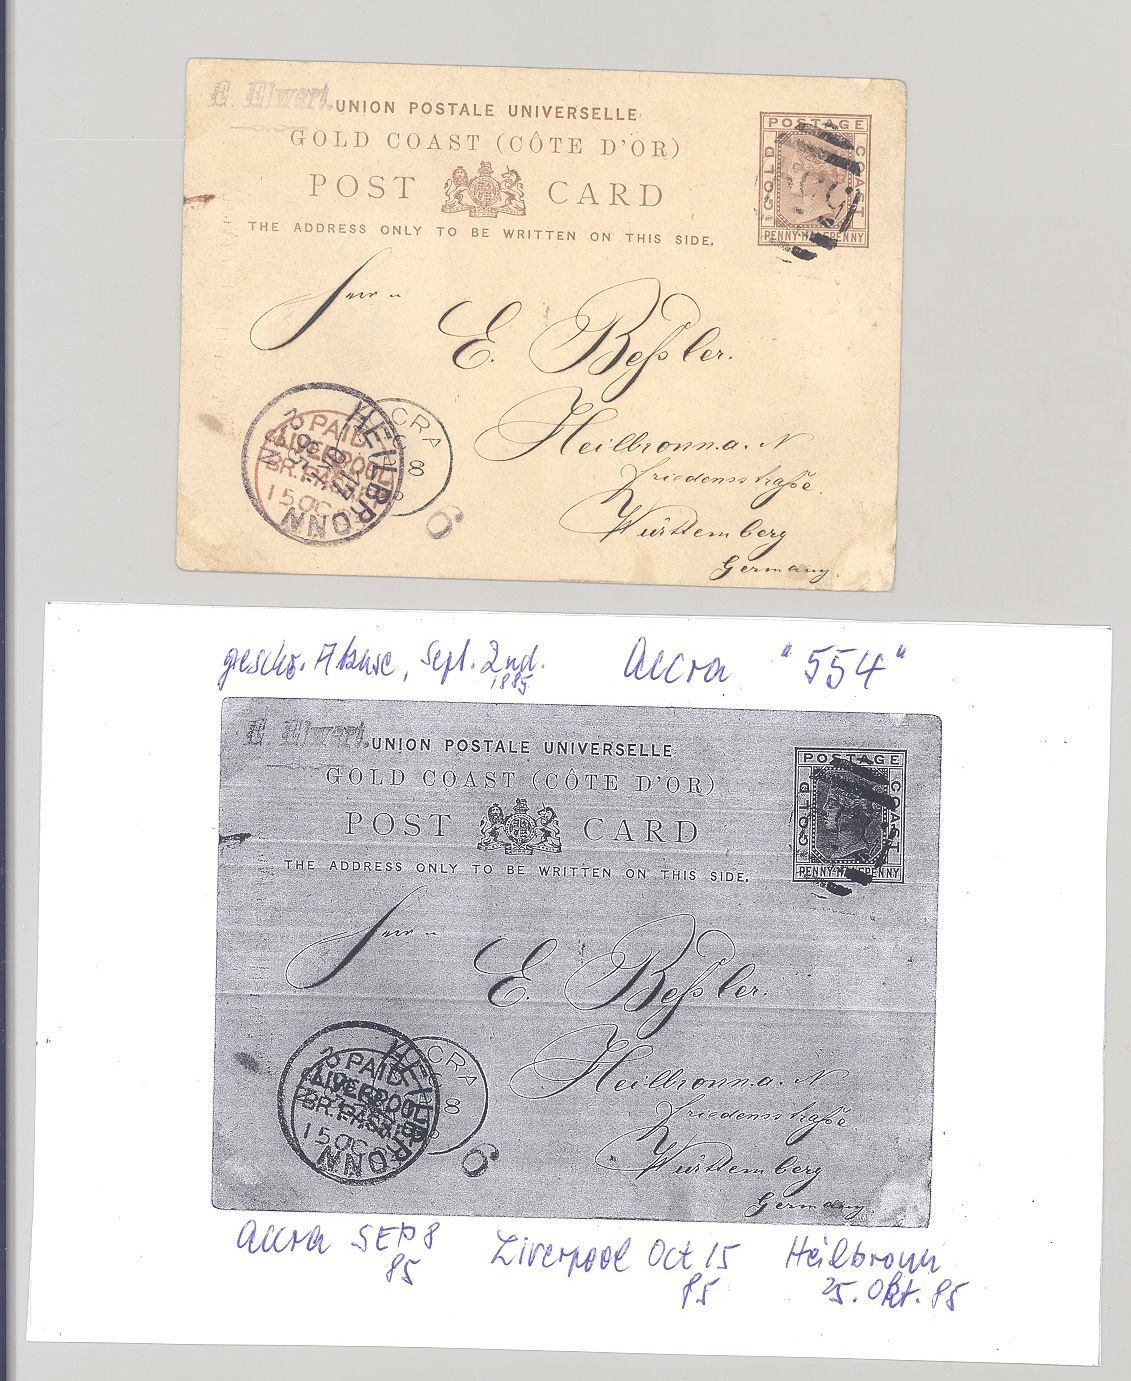 E. Elwert.
UNION POSTALE UNIVERSELLE
GOLD COAST (CÔTE D'OR)
POST CARD
THE ADDRESS ONLY TO BE WRITTEN ON THIS SIDE.
POSTAGE
GOLD COAST
PENNY-HALFPENNY
Herrn
E. Beßler.
Heilbronn a. N
Friedensstraße.
Württemberg
Germany.
HEILBRONN
PAID
LIVERPOOL
BR. PACKET
15 OC
CRA
8
6
geschr. Akuse, Sept. 2nd. 1885
Accra "554"
E. Elwert.
UNION POSTALE UNIVERSELLE
GOLD COAST (CÔTE D'OR)
POST CARD
THE ADDRESS ONLY TO BE WRITTEN ON THIS SIDE.
POSTAGE
GOLD COAST
PENNY-HALFPENNY
Herrn
E. Beßler.
Heilbronn a. N
Friedensstraße
Württemberg
Germany.
HEILBRONN
PAID
LIVERPOOL
BR. PACKET
15 OC
CRA
8
6
Accra SEP 8 85
Liverpool Oct 15 85
Heilbronn 25. Okt. 85